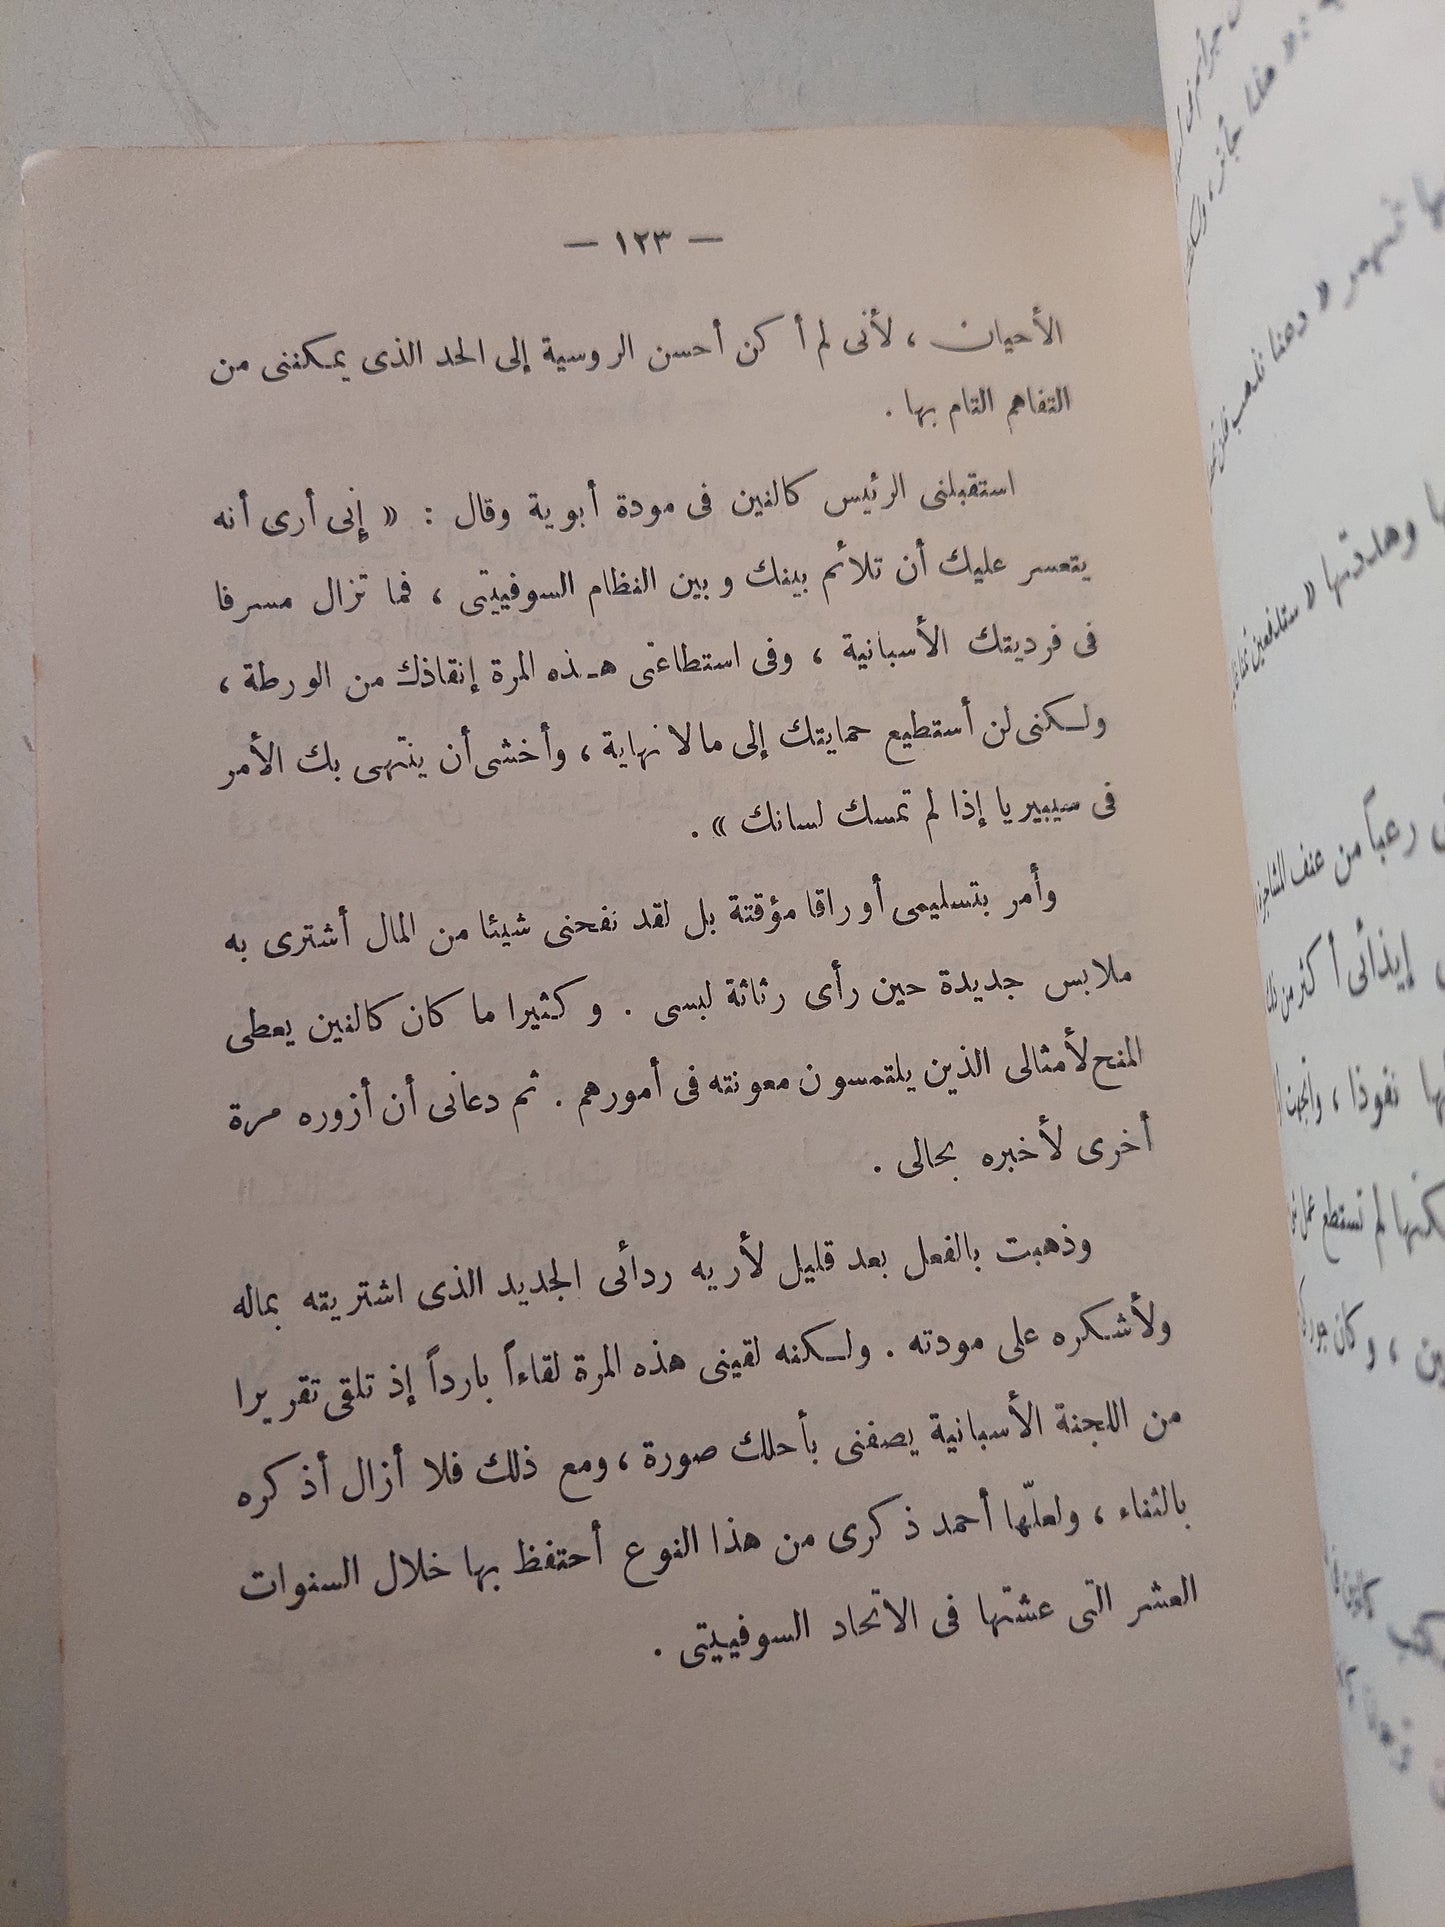 — ١٢٣ —
الأحيان ، لأنى لم أكن أحسن الروسية إلى الحد الذى يمكننى من
التفاهم التام بها .
استقبلنى الرئيس كالنين فى مودة أبوية وقال : « إنى أرى أنه
يتعسر عليك أن تلائم بينك وبين النظام السوفييتى ، فما تزال مسرفا
فى فرديتك الأسبانية ، وفى استطاعتى هـذه المرة إنقاذك من الورطة ،
ولـكنى لن أستطيع حمايتك إلى ما لا نهاية ، وأخشى أن ينتهى بك الأمر
فى سيبيريا إذا لم تمسك لسانك » .
وأمر بتسليمى أوراقا مؤقتة بل لقد نفحنى شيئا من المال أشترى به
ملابس جديدة حين رأى رثاثة لبسى . وكثيرا ما كان كالنين يعطى
المنح لأمثالى الذين يلتمسون معونته فى أمورهم . ثم دعانى أن أزوره مرة
أخرى لأخبره بحالى .
وذهبت بالفعل بعد قليل لأريه ردائى الجديد الذى اشتريته بماله
ولأشكره على مودته . ولـكنه لقينى هذه المرة لقاءاً بارداً إذ تلقى تقريرا
من اللجنة الأسبانية يصفنى بأحلك صورة ، ومع ذلك فلا أزال أذكره
بالثناء ، ولعلّها أحمد ذكرى من هذا النوع أحتفظ بها خلال السنوات
العشر التى عشتها فى الاتحاد السوفييتى .
« هذا جائز ، ولكن
« دعنا نذهب
وهددتها « ستدفعين
رعباً من عنف
إيذائى أكثر من ذلك
نفوذا ،
لم تستطع عمل
، وكان